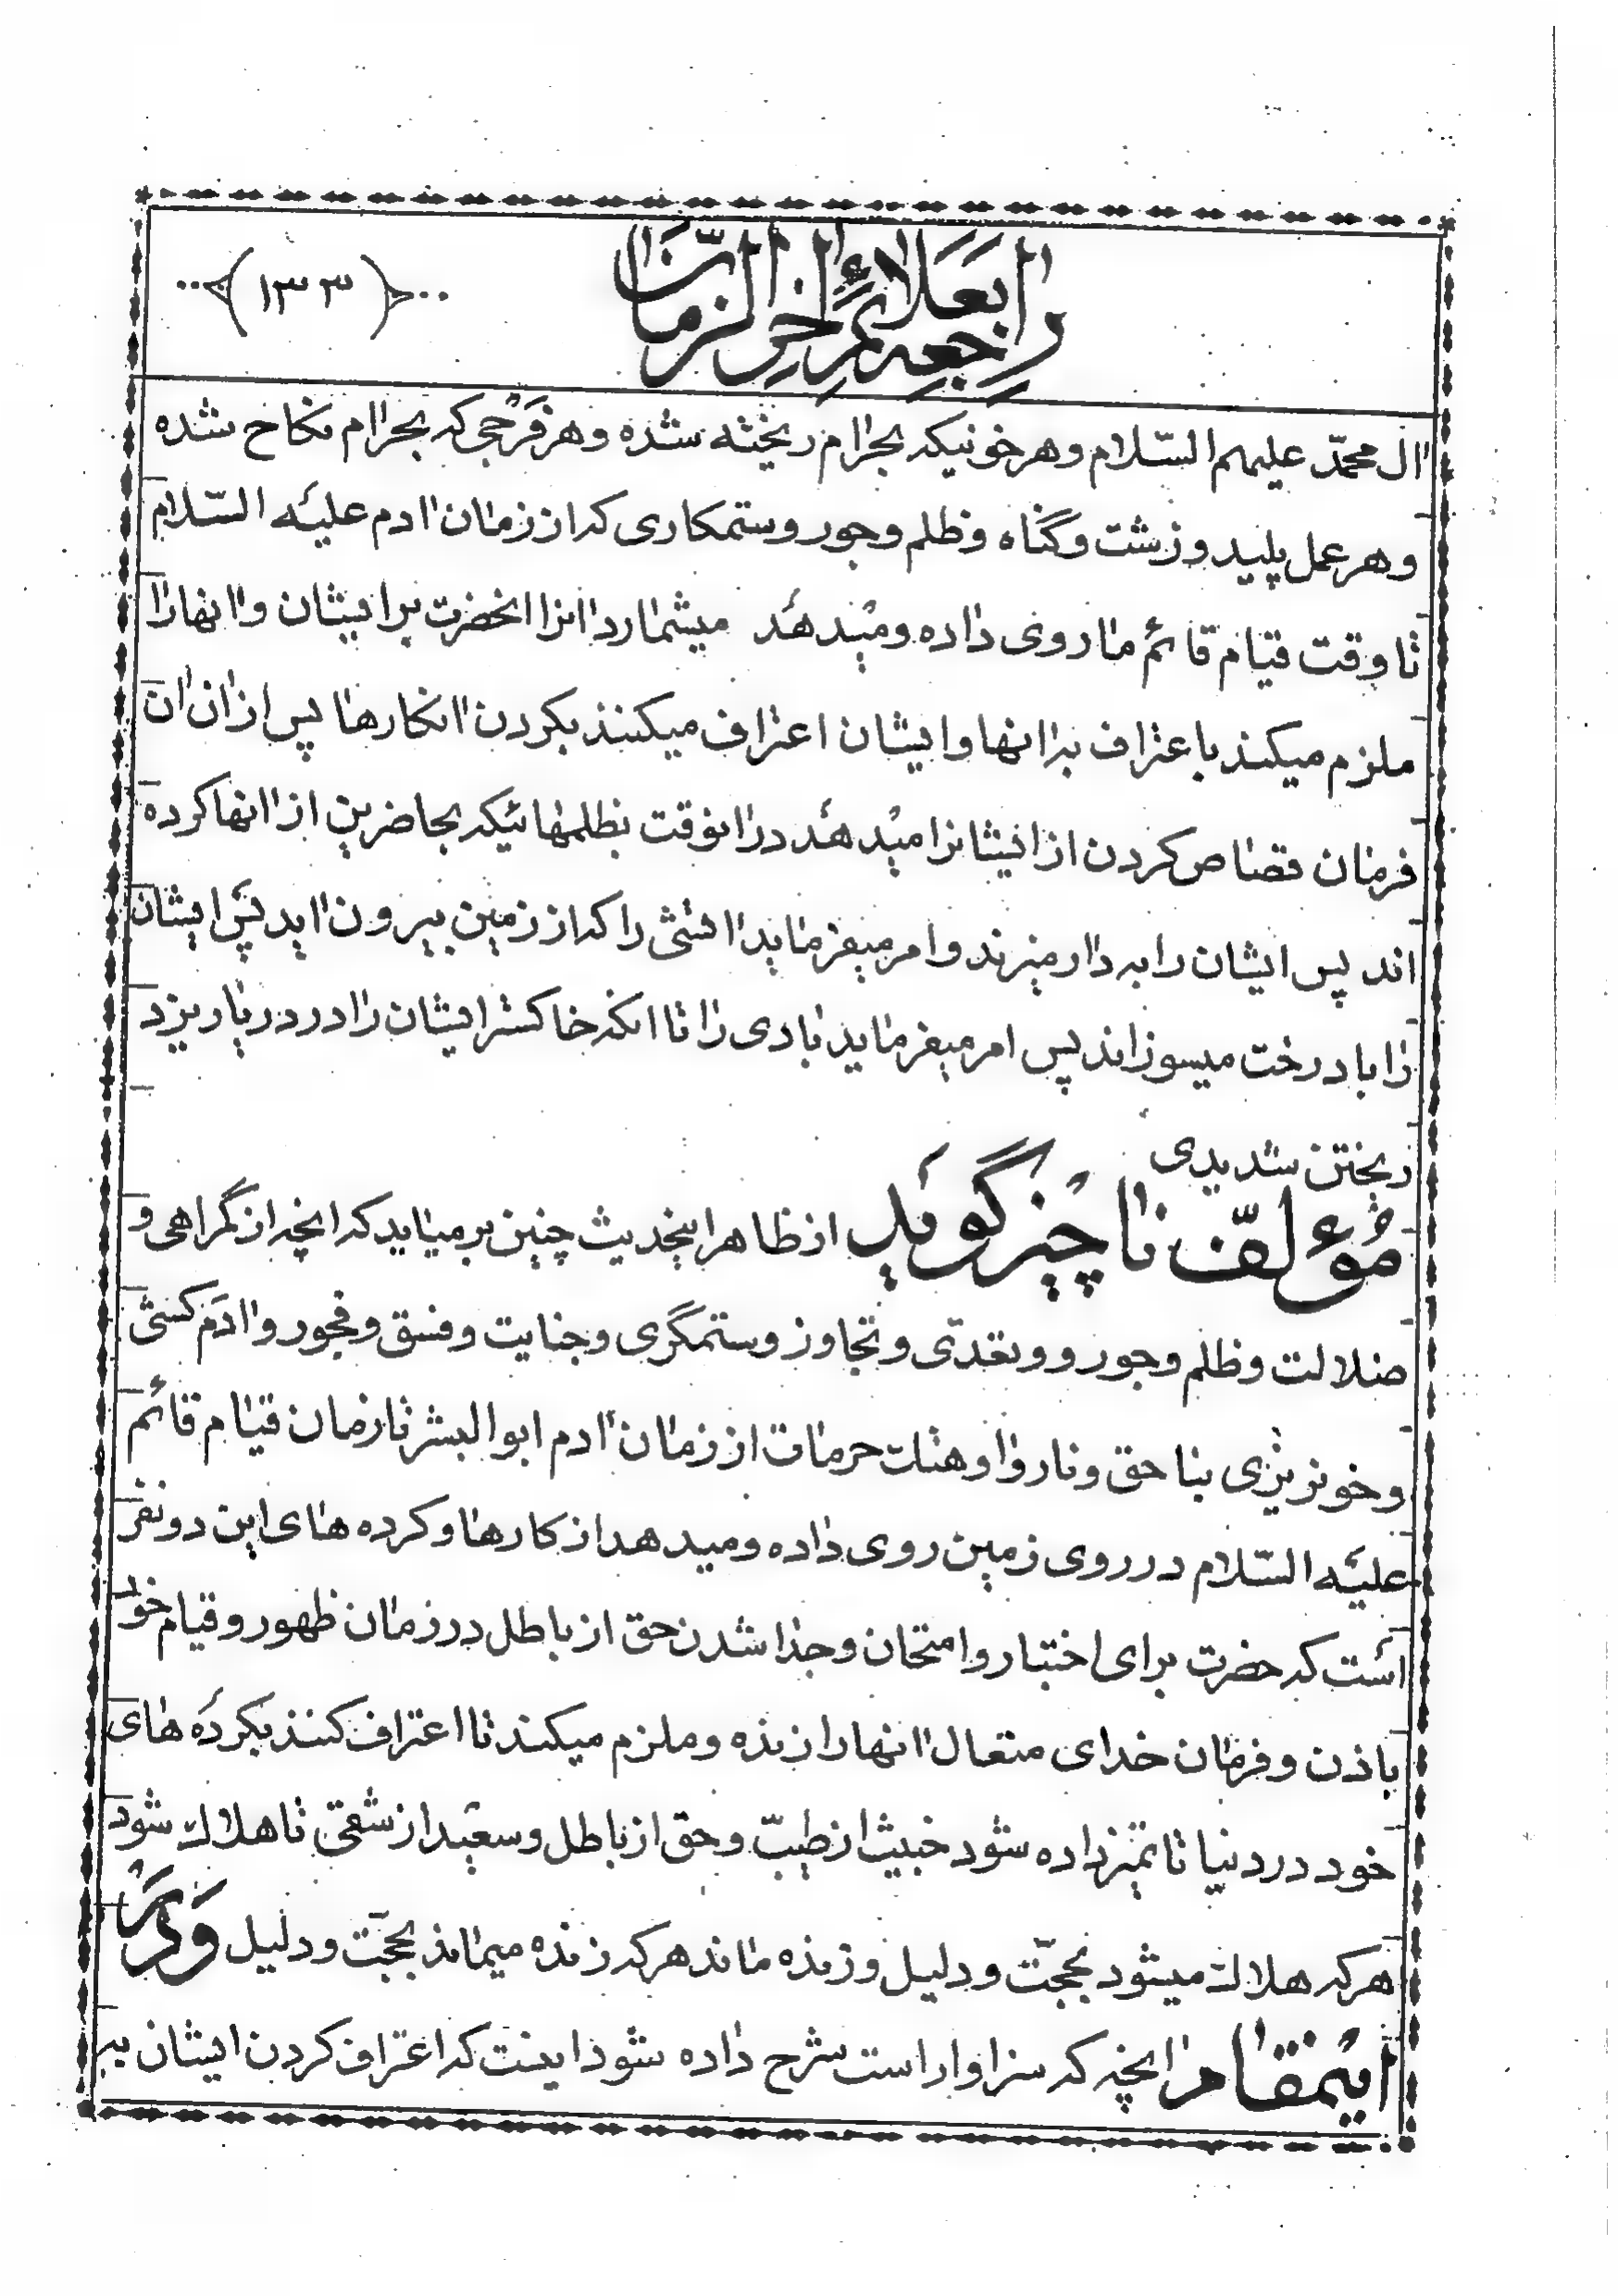 راجعه بعلائم آخر الزمان
(۱۳۳)
آل محمّد علیهم السّلام و هر خونیکه بحرام ریخته شده و هر فَرْجی که بحرام نکاح شده
و هر عمل پلید و زشت و گناه و ظلم و جور و ستمکاری که از زمان آدم علیه السّلام
تا وقت قیام قائم ما روی داده و میدهد میشمارد آنرا آنحضرت بر ایشان و آنها را
ملزم میکند باعتراف بدانها و ایشان اعتراف میکنند بکردن آنکارها پس از آن آن
فرمان قصاص کردن از ایشانرا میدهد در آنوقت بظلمهائیکه بحاضرین از آنها کرده
اند پس ایشان را به دار میزند و امر میفرماید آتشی را که از زمین بیرون آید پس ایشان
را با درخت میسوزاند پس امر میفرماید بادی را تا آنکه خاکستر ایشان را در دریا ریزد
ریختن شدیدی
مُؤلّف ناچیز گوید از ظاهر اینحدیث چنین بر میآید که آنچه از گمراهی و
ضلالت و ظلم و جور و و تعدّی و تجاوز و ستمگری و جنایت و فسق و فجور و آدَم کشی
و خونریزی بنا حق و ناروا و هتک حرمات از زمان آدم ابوالبشر تا زمان قیام قائم
علیه السّلام در روی زمین روی داده و میدهد از کارها و کرده های این دو نفر
است که حضرت برای اختبار و امتحان و جدا شدن حق از باطل در زمان ظهور و قیام خود
باذن و فرمان خدای متعال آنها را زنده و ملزم میکند تا اعتراف کنند بکرده های
خود در دنیا تا تمیز داده شود خبیث از طیّب و حق از باطل و سعید از شقی تا هلاک شود
هر که هلاک میشود بحجّت و دلیل و زنده ماند هر که زنده میماند بحجّت و دلیل وَ دَر
اینمقام آنچه که سزاوار است شرح داده شود اینست که اعتراف کردن ایشان بر